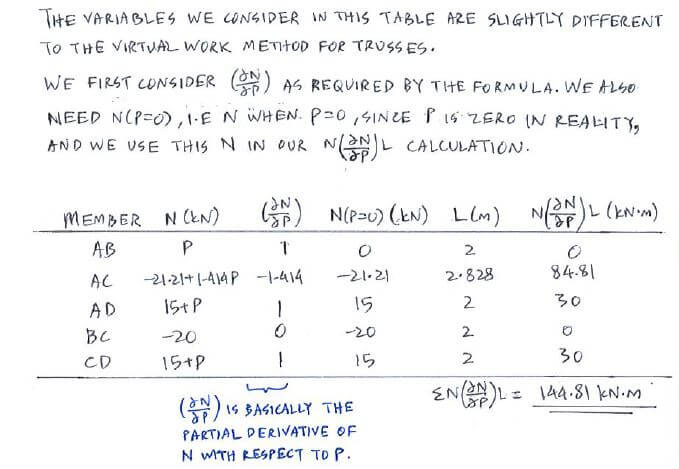 THE VARIABLES WE CONSIDER IN THIS TABLE ARE SLIGHTLY DIFFERENT
TO THE VIRTUAL WORK METHOD FOR TRUSSES.
WE FIRST CONSIDER (∂N/∂P) AS REQUIRED BY THE FORMULA. WE ALSO
NEED N(P=0), I.E N WHEN. P=0, SINCE P IS ZERO IN REALITY,
AND WE USE THIS N IN OUR N(∂N/∂P)L CALCULATION.
MEMBER N (kN) (∂N/∂P) N(P=0) (kN) L(m) N(∂N/∂P)L (kN·m)
AB P 1 0 2 0
AC -21.21+1.414P -1.414 -21.21 2.828 84.81
AD 15+P 1 15 2 30
BC -20 0 -20 2 0
CD 15+P 1 15 2 30
ΣN(∂N/∂P)L = 144.81 kN·m
(∂N/∂P) IS BASICALLY THE
PARTIAL DERIVATIVE OF
N WITH RESPECT TO P.